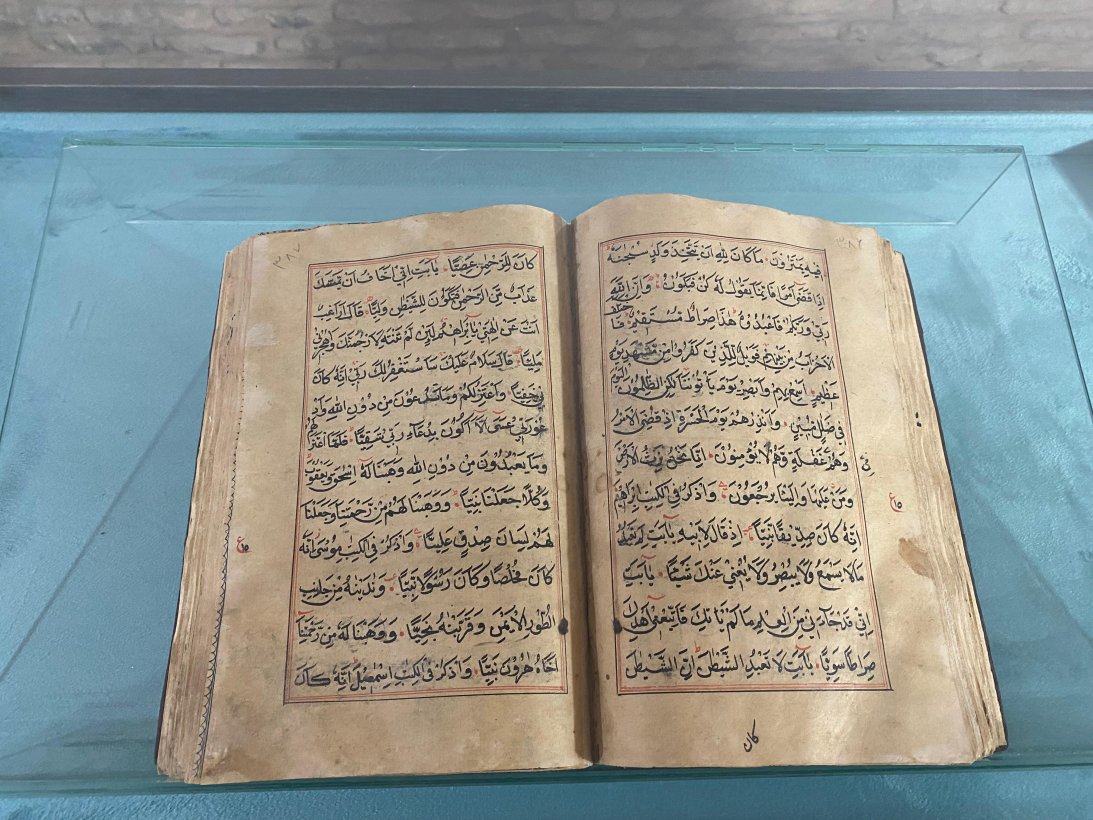 ٣٨٢
فِيهِ يَمْتَرُونَ مَا كَانَ لِلّٰهِ اَنْ يَتَّخِذَ وَلَدٍ سُبْحٰنَهٗ
اِذَا قَضٰۤى اَمْرًا فَاِنَّمَا يَقُولُ لَهٗ كُنْ فَيَكُونُ وَاِنَّ اللّٰهَ
رَبِّي وَرَبُّكُمْ فَاعْبُدُوهُ هٰذَا صِرَاطٌ مُسْتَقِيمٌ فَاخْتَلَفَ
الْاَحْزَابُ مِنْ بَيْنِهِمْ فَوَيْلٌ لِلَّذِينَ كَفَرُوا مِنْ مَشْهَدِ يَوْمٍ
عَظِيمٍ اَسْمِعْ بِهِمْ وَاَبْصِرْ يَوْمَ يَاْتُونَنَا لٰكِنِ الظّٰلِمُونَ الْيَوْمَ
فِي ضَلٰلٍ مُبِينٍ وَاَنْذِرْهُمْ يَوْمَ الْحَسْرَةِ اِذْ قُضِيَ الْاَمْرُ
وَهُمْ فِي غَفْلَةٍ وَهُمْ لَا يُؤْمِنُونَ اِنَّا نَحْنُ نَرِثُ الْاَرْضَ
وَمَنْ عَلَيْهَا وَاِلَيْنَا يُرْجَعُونَ وَاذْكُرْ فِي الْكِتٰبِ اِبْرٰهِيمَ
اِنَّهٗ كَانَ صِدِّيقًا نَبِيًّا اِذْ قَالَ لِاَبِيهِ يٰۤاَبَتِ لِمَ تَعْبُدُ
مَا لَا يَسْمَعُ وَلَا يُبْصِرُ وَلَا يُغْنِي عَنْكَ شَيْئًا يٰۤاَبَتِ
اِنِّي قَدْ جَآءَنِي مِنَ الْعِلْمِ مَا لَمْ يَاْتِكَ فَاتَّبِعْنِي اَهْدِكَ
صِرَاطًا سَوِيًّا يٰۤاَبَتِ لَا تَعْبُدِ الشَّيْطٰنَ اِنَّ الشَّيْطٰنَ
كان
كَانَ لِلرَّحْمٰنِ عَصِيًّا يٰۤاَبَتِ اِنِّي اَخَافُ اَنْ يَمَسَّكَ
عَذَابٌ مِّنَ الرَّحْمٰنِ فَتَكُونَ لِلشَّيْطٰنِ وَلِيًّا قَالَ اَرَاغِبٌ
اَنْتَ عَنْ اٰلِهَتِي يٰۤاِبْرٰهِيمُ لَئِنْ لَمْ تَنْتَهِ لَاَرْجُمَنَّكَ وَاهْجُرْنِي
مَلِيًّا قَالَ سَلٰمٌ عَلَيْكَ سَاَسْتَغْفِرُ لَكَ رَبِّي اِنَّهٗ كَانَ
بِي حَفِيًّا وَاَعْتَزِلُكُمْ وَمَا تَدْعُونَ مِنْ دُونِ اللّٰهِ وَاَدْ
عُو رَبِّي عَسٰۤى اَلَّاۤ اَكُونَ بِدُعَآءِ رَبِّي شَقِيًّا فَلَمَّا اعْتَزَلَهُمْ
وَمَا يَعْبُدُونَ مِنْ دُونِ اللّٰهِ وَهَبْنَا لَهٗ اِسْحٰقَ وَيَعْقُوبَ
وَكُلًّا جَعَلْنَا نَبِيًّا وَوَهَبْنَا لَهُمْ مِنْ رَحْمَتِنَا وَجَعَلْنَا
لَهُمْ لِسَانَ صِدْقٍ عَلِيًّا وَاذْكُرْ فِي الْكِتٰبِ مُوسٰۤى اِنَّهٗ
كَانَ مُخْلَصًا وَكَانَ رَسُولًا نَبِيًّا وَنَادَيْنٰهُ مِنْ جَانِبِ
الطُّورِ الْاَيْمَنِ وَقَرَّبْنٰهُ نَجِيًّا وَوَهَبْنَا لَهٗ مِنْ رَحْمَتِنَا
اَخَاهُ هٰرُونَ نَبِيًّا وَاذْكُرْ فِي الْكِتٰبِ اِسْمٰعِيلَ اِنَّهٗ كَانَ